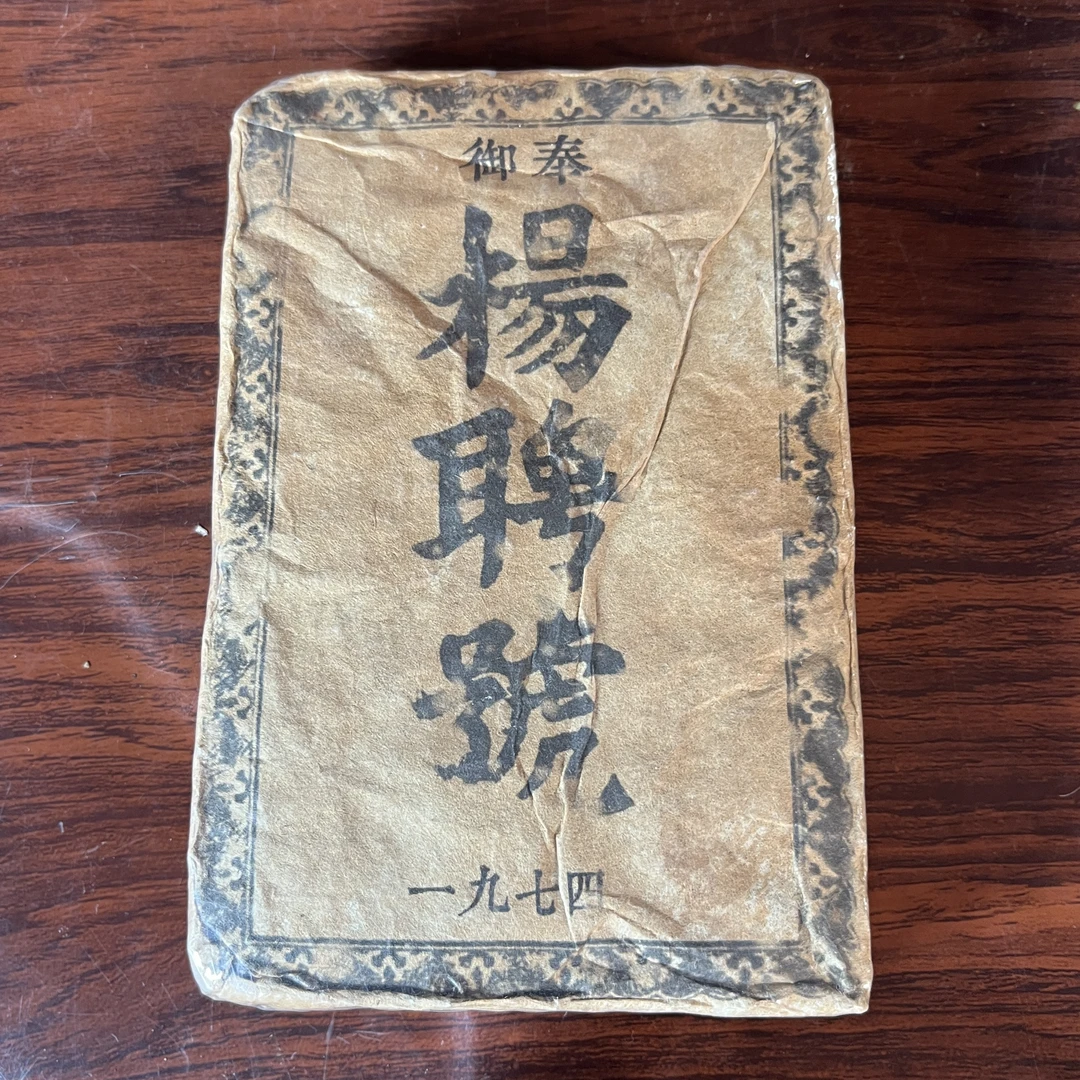 奉御
楊聘號
一九七四